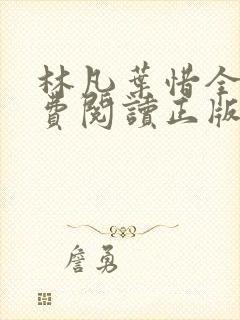 林凡葉惜全
費閱讀正版
詹勇